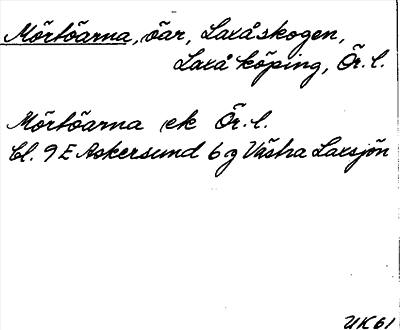 Mörtöarna, öar, Laxåskogen,
Laxå köping, Ör. l.
Mörtöarna ek Ör. l.
Bl. 9 E Askersund 6 g Västra Laxsjön
UK 61